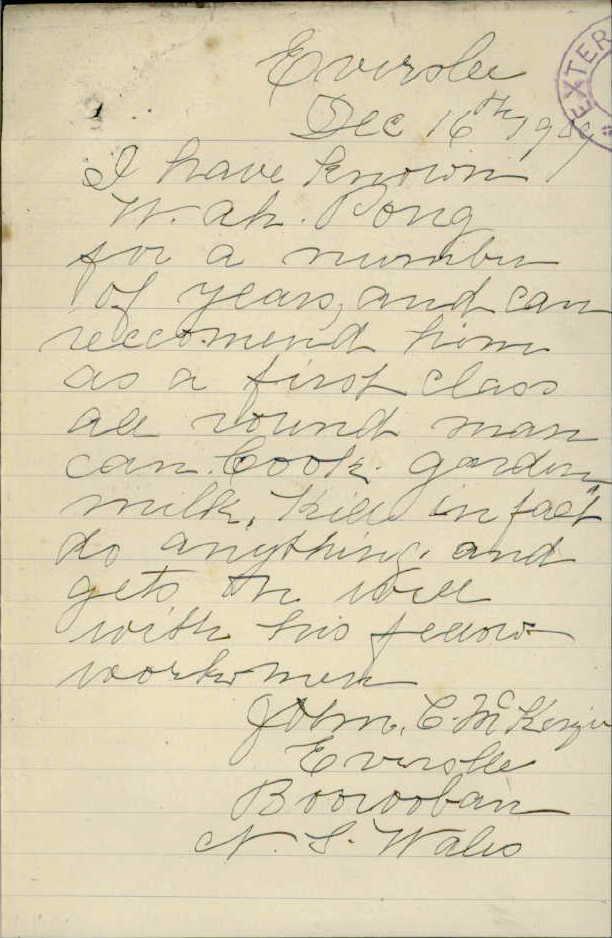 Eversley
Dec 16th 190
EXTER
I have known
W. Ah. Pong
for a number
of years, and can
reccomend him
as a first class
all round man
can. Cook. garden,
milk, kill in fact
do anything. and
gets on well
with his fellow
workmen
John. C. McKenzie
Eversley
Booroorban
N. S. Wales